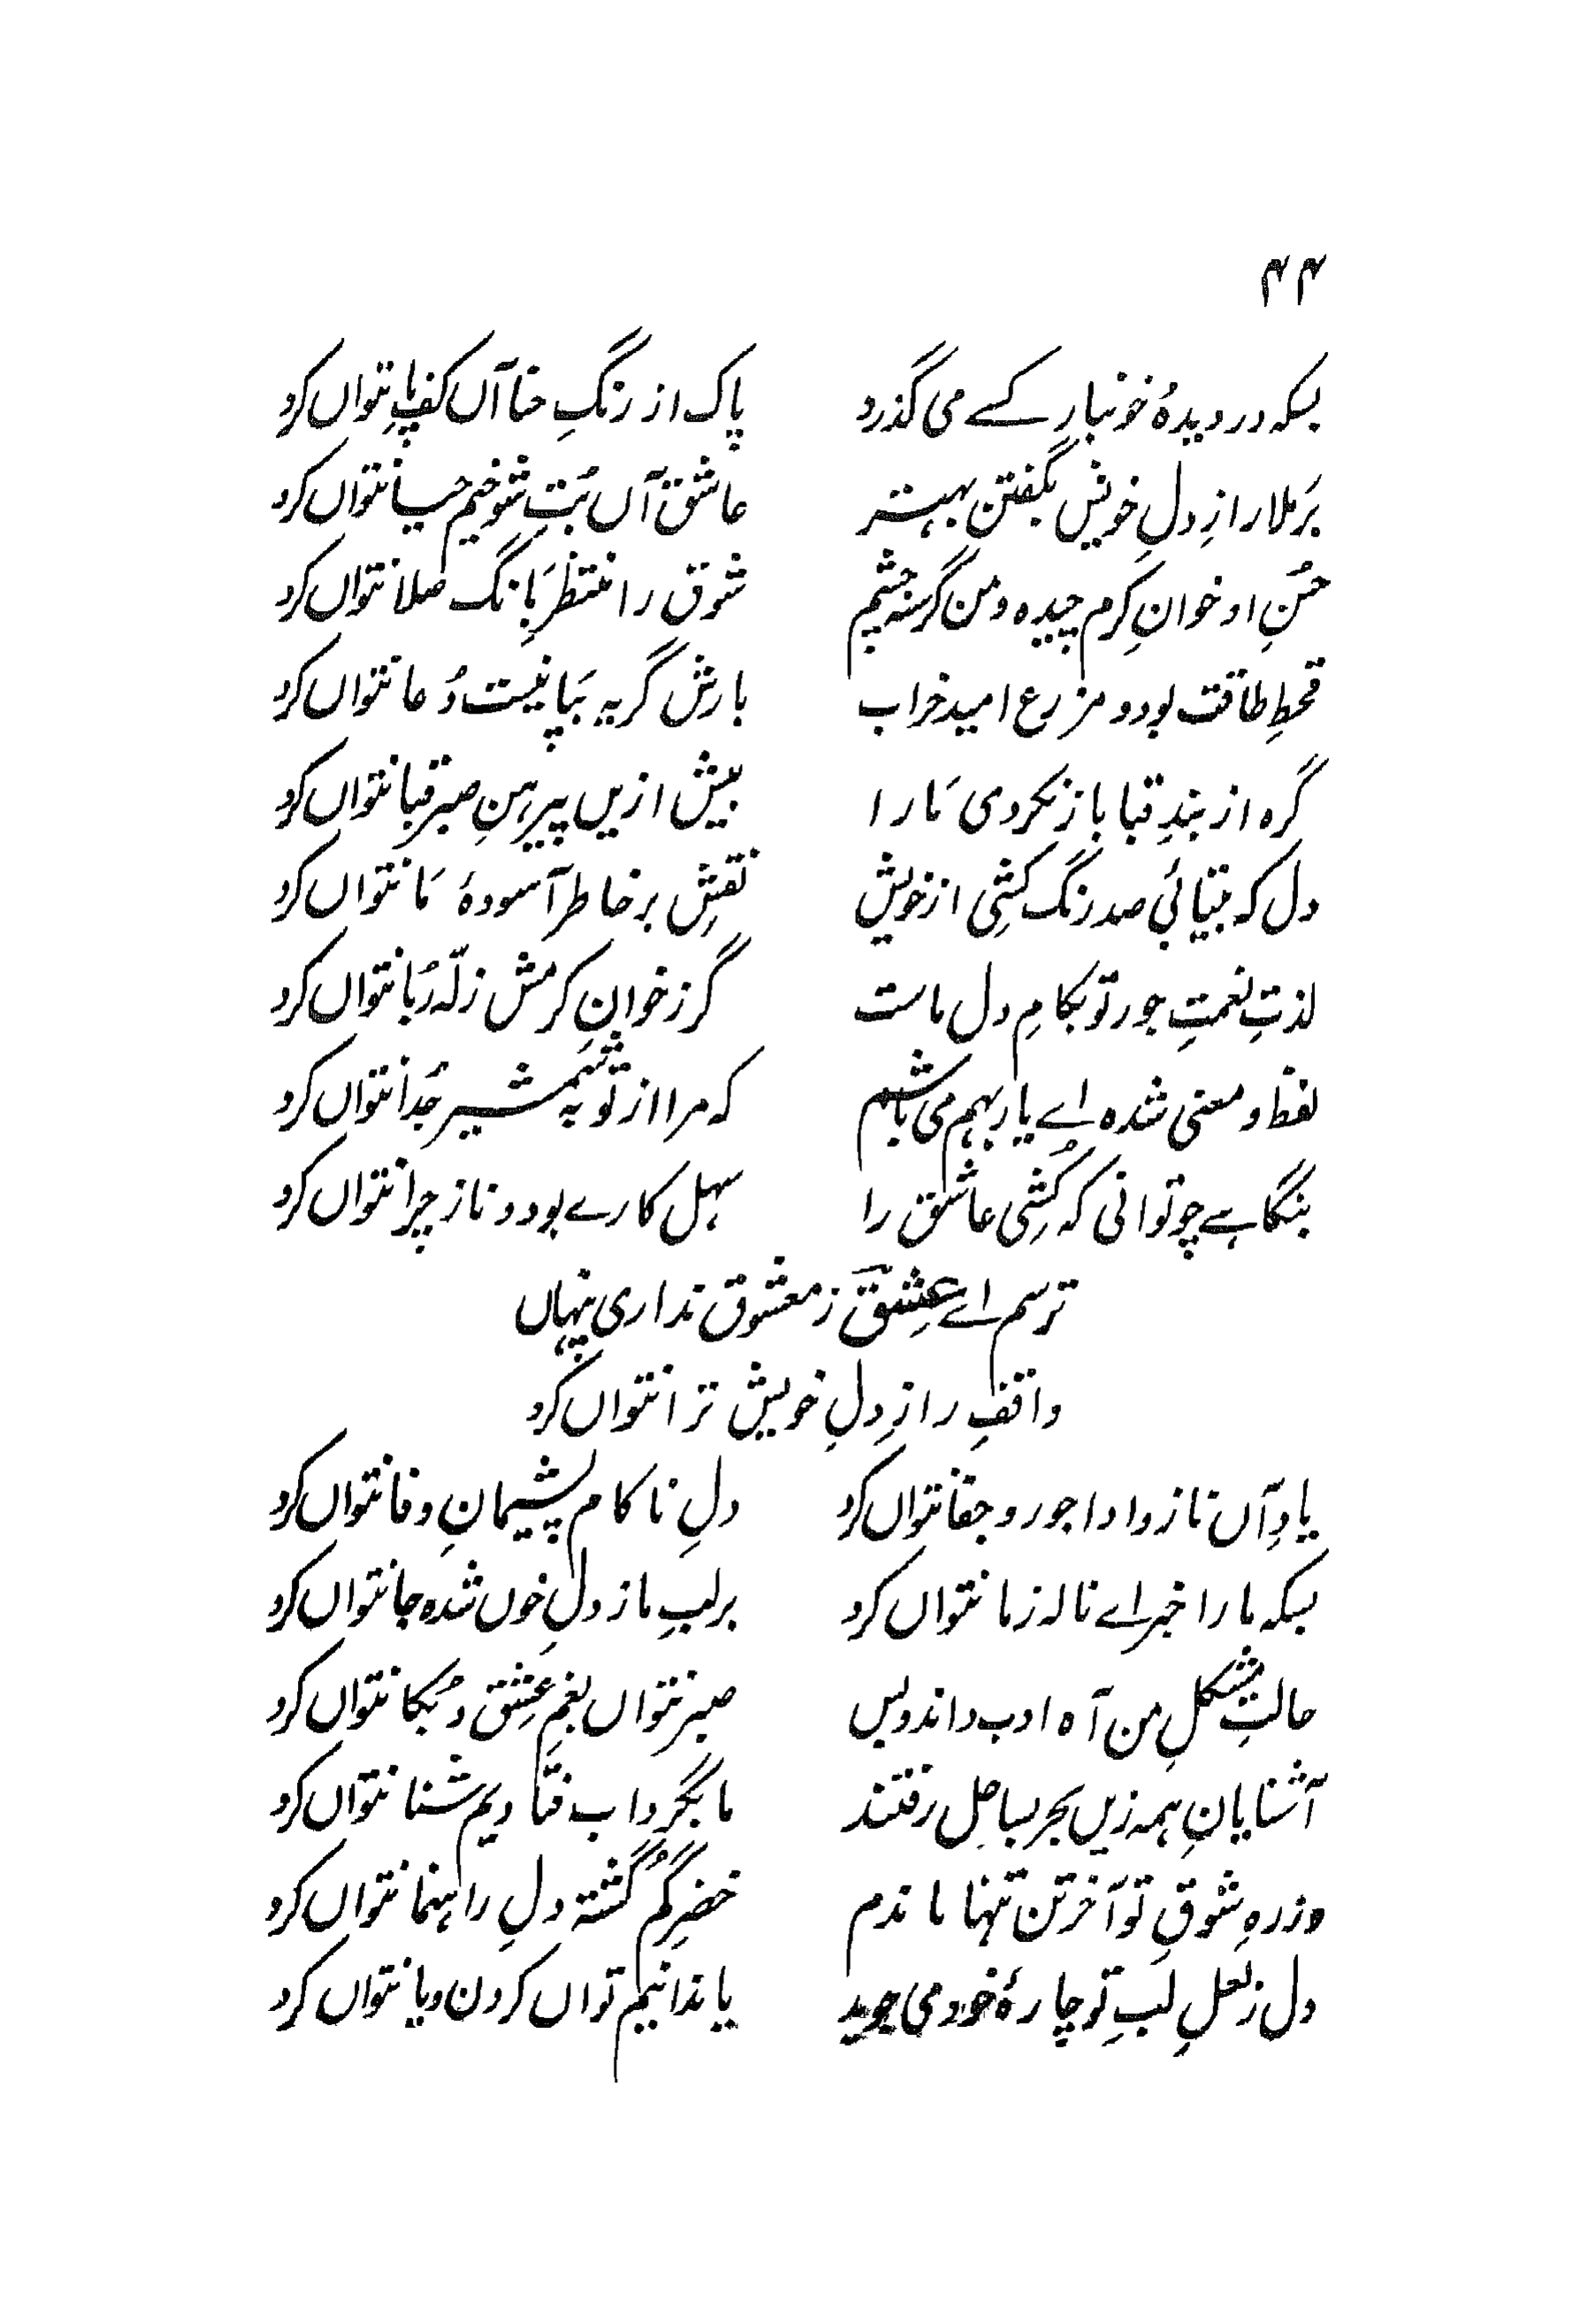 ۴۴
بسکہ در دیدۂ خونبارِ کسے می گذرد پاک از رنگِ حنا آں کفِ پا نتواں کرد
بَرملا رازِ دلِ خویش بگفتن بہتر عاشق آں بُتِ شوخیم حیا نتواں کرد
حُسنِ او خوانِ کرم چیدہ و من گرسنہ چشم شوق را منتظرِ بانگ صلا نتواں کرد
قحطِ طاقت بود و مزرع امید خراب بارش گریہ بَپا نیست دُعا نتواں کرد
گرہ از بندِ قبا باز نکردی مَارا بیش ازیں پیرہنِ صبر قبا نتواں کرد
دل کہ بیتابیِ صد رنگ کشی از خویش نقشِ بر خاطر آسودۂ مَا نتواں کرد
لذتِ نعمتِ جور تو بکامِ دل ماست گر ز خوانِ کرمش زلّہ رُبا نتواں کرد
لفظ و معنی شدہ اے یار بہم می باشیم کہ مرا از تو بہ شمشیر جُدا نتواں کرد
بنگاہے چو توانی کہ کُشی عاشق را سہل کارے بود و ناز چرا نتواں کرد
ترسم اے عِشقؔ ز معشوق نداری پنہاں
واقفِ رازِ دلِ خویش ترا نتواں کرد
یادِ آں ناز و ادا جور و جفا نتواں کرد دلِ ناکام پشیمانِ وفا نتواں کرد
بسکہ مارا خبر اے نالہ ز ما نتواں کرد بر لبِ ما ز دلِ خوں شدہ جا نتواں کرد
حالتِ مشکلِ من آہ ادب داند و بس صبر نتواں بغمِ عِشق و بُکا نتواں کرد
آشنایانِ ہمہ زیں بحر بساحِل رفتند ما بگرداب فتادیم شنا نتواں کرد
در رہِ شوقِ تو آخر تن تنہا ماندم خضرِ گُم گشتۂ دلِ راہنما نتواں کرد
دل ز لعلِ لبِ تو چارۂ خود می جوید یا ندانیم تواں کردن و یا نتواں کرد